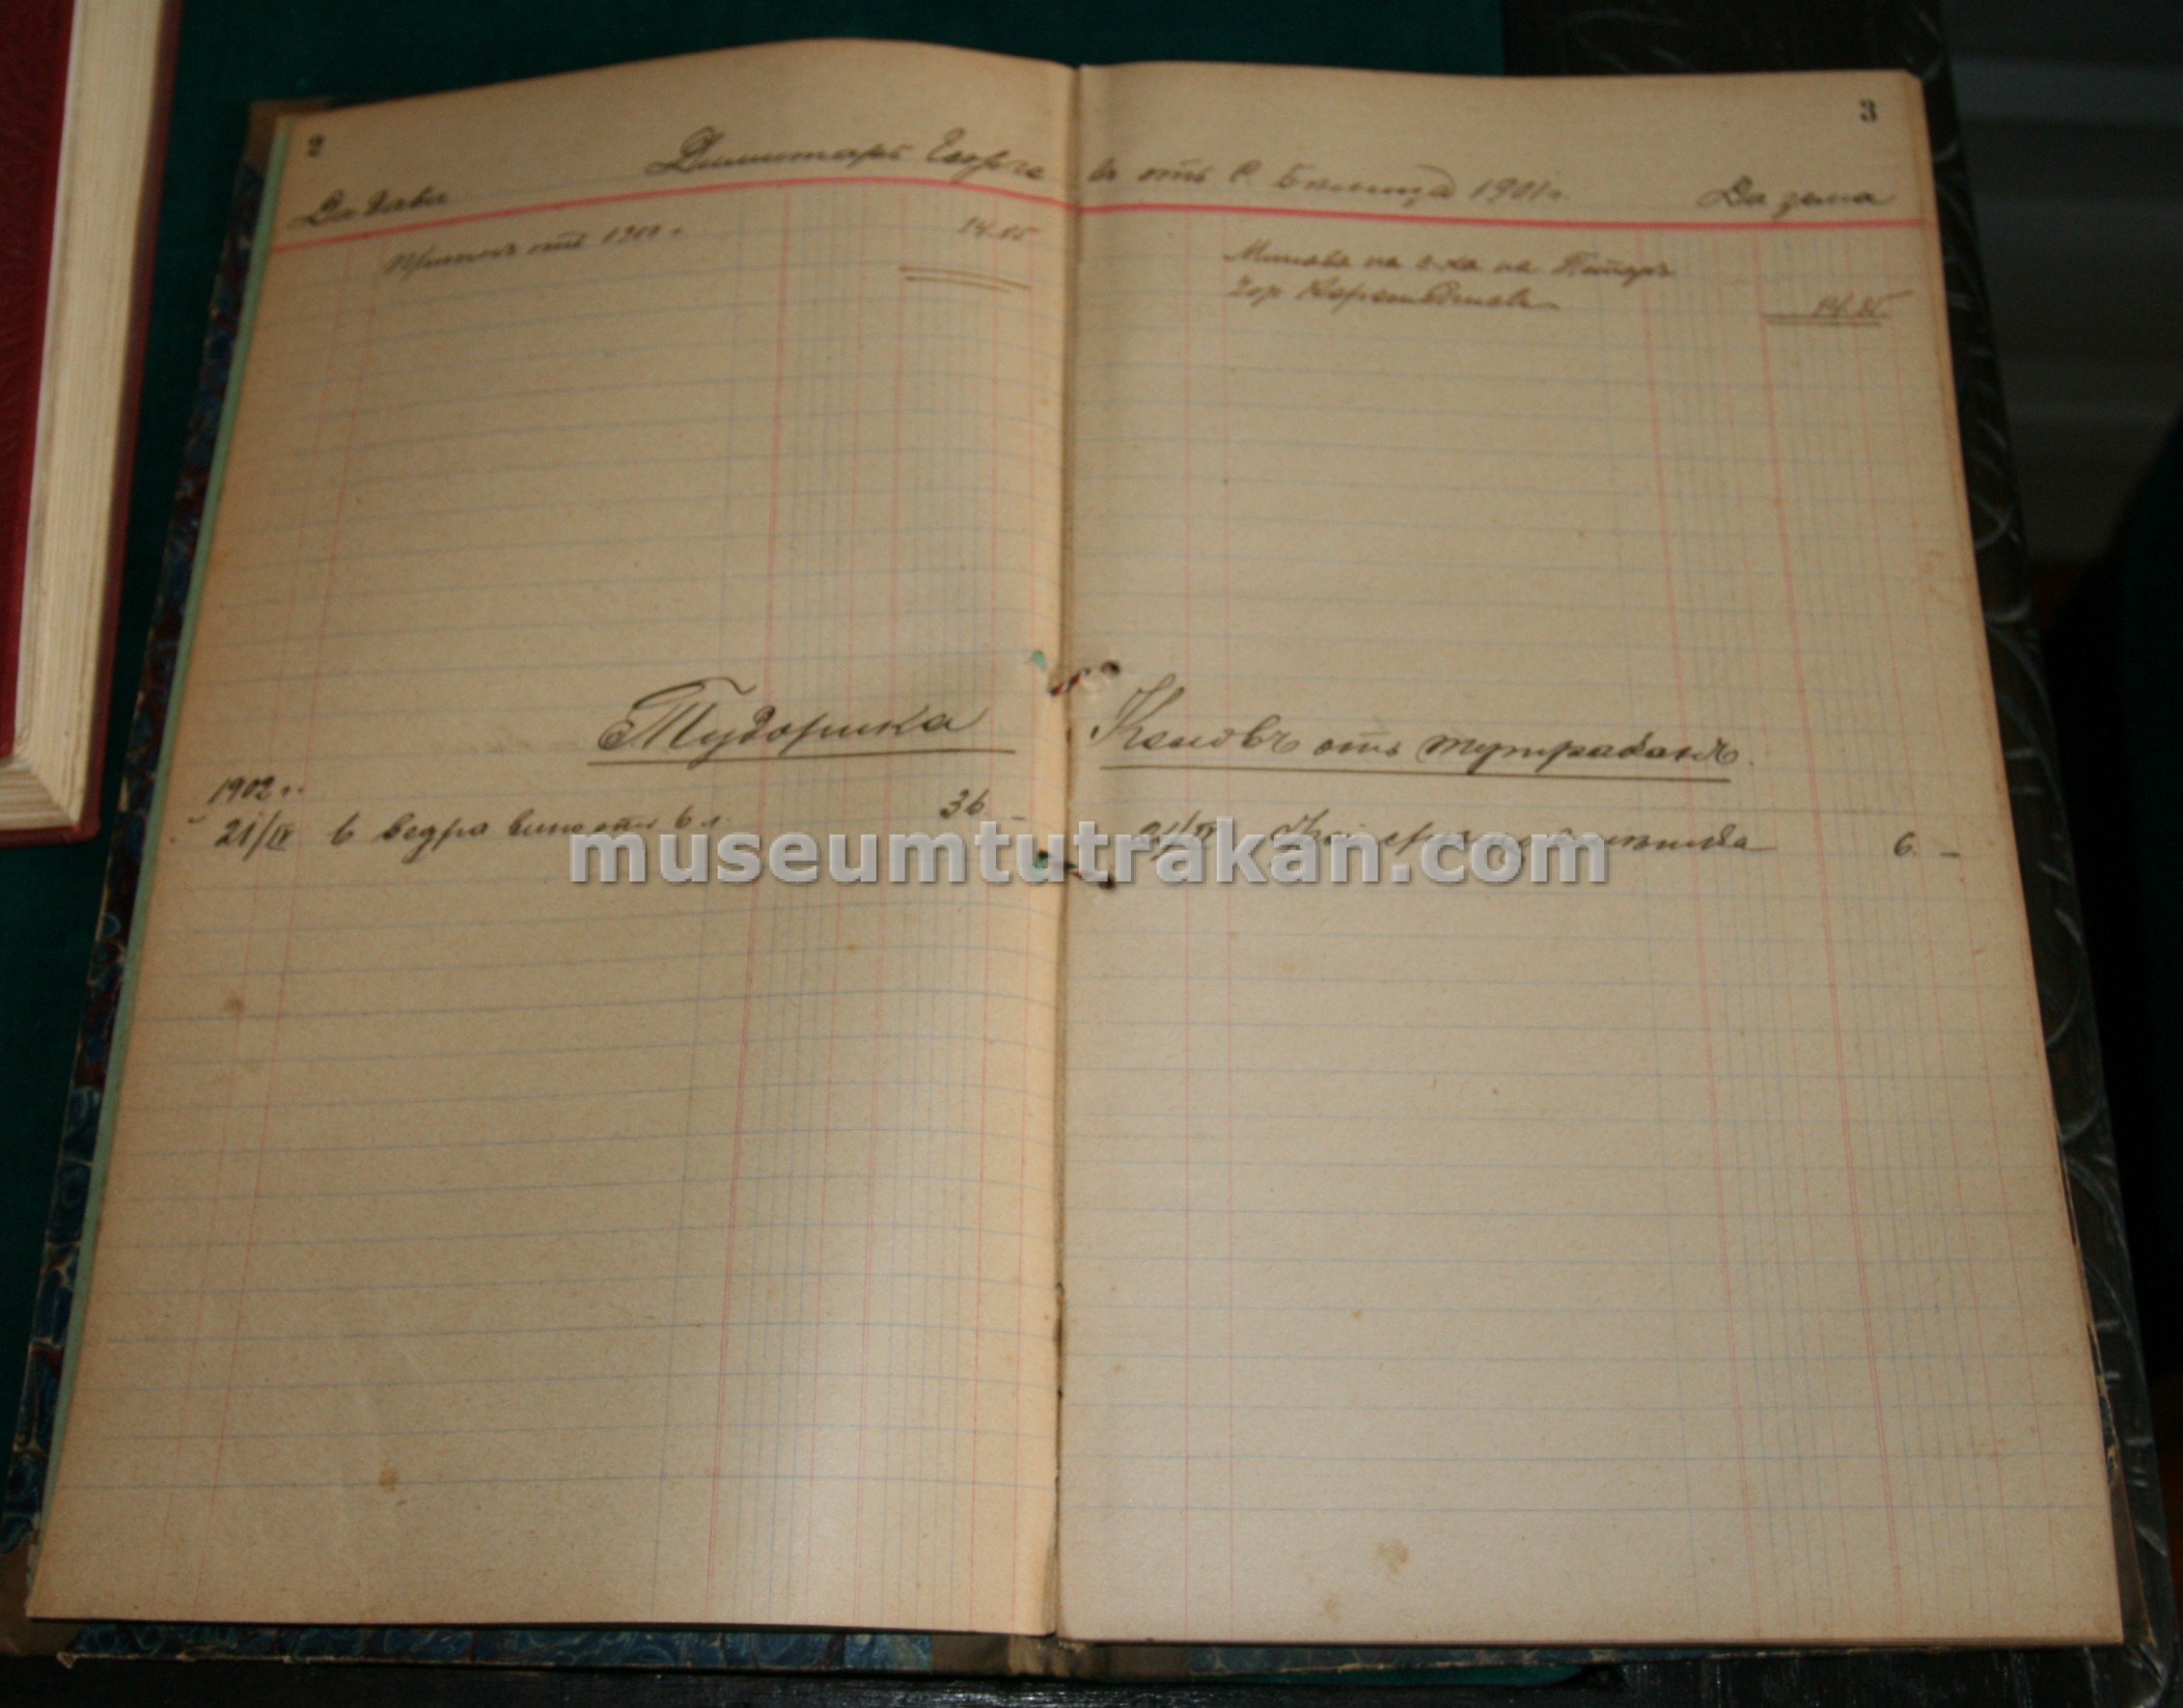 2
3
Димитаръ Георгевъ отъ с. Бѣлица 1901 г.
Да дава
Да зема
отъ 1900 г.
14.85
Минава на с-ка на Петаръ
14.85
Тудорика Кановъ отъ Тутраканъ.
1902 г.
21/IV 6 ведра вино отъ 6 л. 36 –
21/IV
6. –
museumtutrakan.com